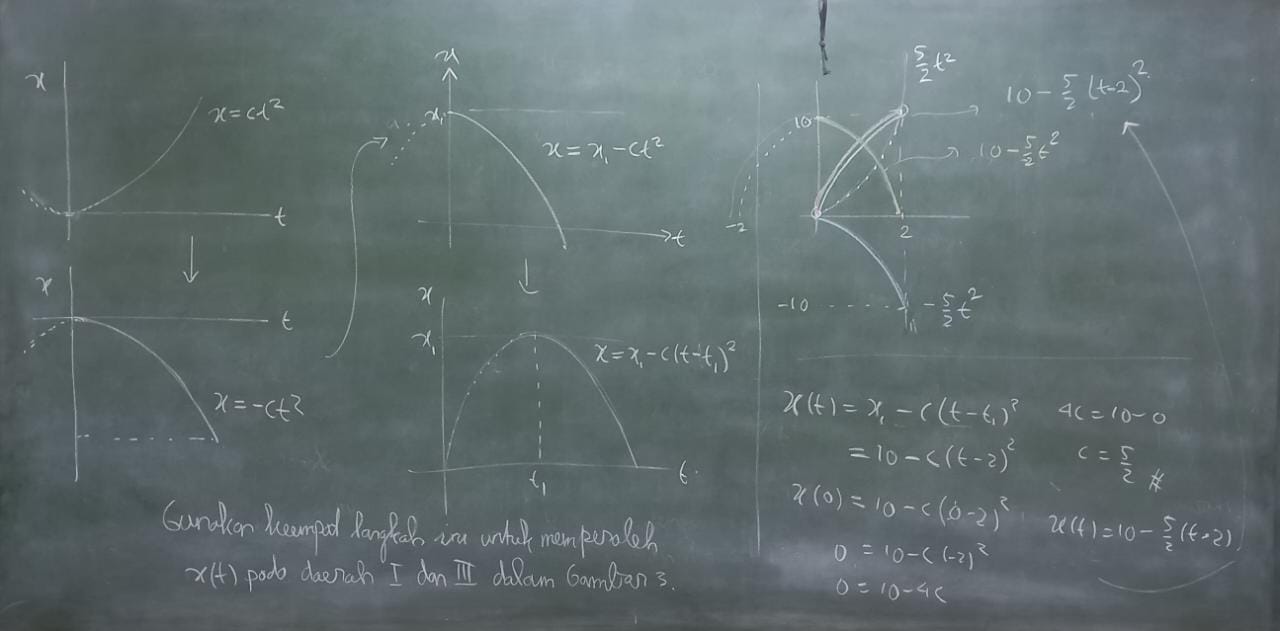 x
x = ct²
t
x
t
x = -ct²
x
x₁
x = x₁ - ct²
t
x
x₁
x = x₁ - c(t-t₁)²
t₁
t
Gunakan keempat langkah ini untuk memperoleh
x(t) pada daerah I dan III dalam Gambar 3.
5/2 t²
10 - 5/2 (t-2)²
10
10 - 5/2 t²
-2
2
-10
-5/2 t²
x(t) = x₁ - c(t-t₁)²
= 10 - c(t-2)²
x(0) = 10 - c(0-2)²
0 = 10 - c(-2)²
0 = 10 - 4c
4c = 10 - 0
c = 5/2 #
x(t) = 10 - 5/2 (t-2)